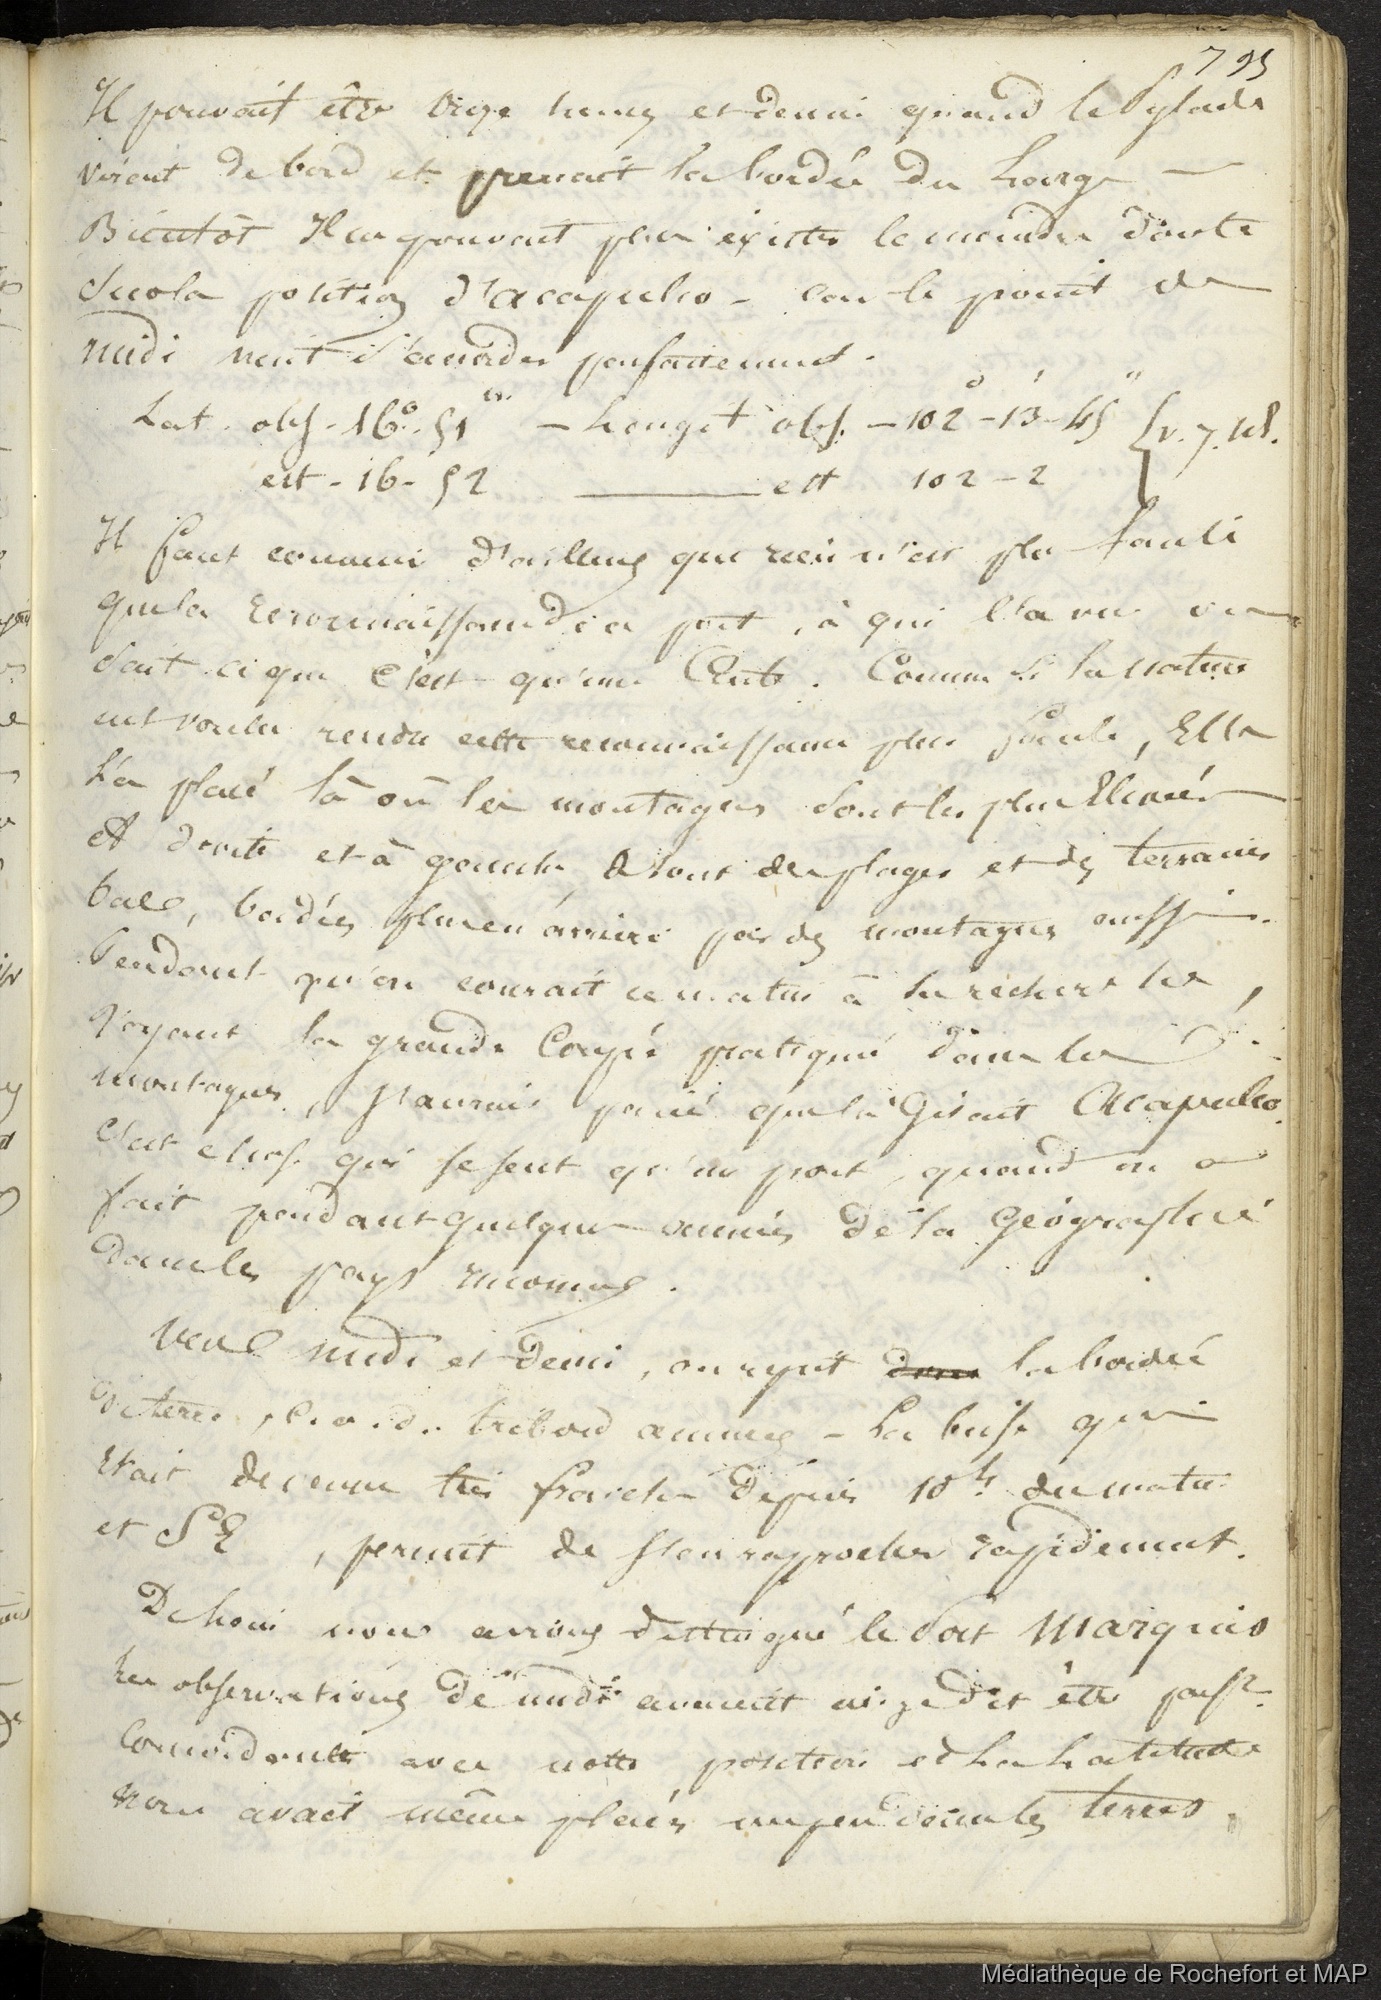 795
Il pouvait être onze heures et demi quand le Pylade
virait de bord et prenait la bordée du Large —
Bientôt Il ne pouvait plus exister le moindre doute
sur la position d'acapulco - car le point de
midi vint s'accorder parfaitement.
Lat. obs. 16°. 51' — Longit obs. — 102° - 13' - 45"
est - 16 - 52 — est 102 - 2
Il faut convenir d'ailleurs que rien n'est plus facile
que la reconnaissance de ce port, à qui l'a vu ou
sait ce que c'est qu'une Carte. Comme si la nature
eut voulu rendre cette reconnaissance plus facile, Elle
l'a placé là où les montagnes sont les plus Elevées
A droite et à gauche sont des plages et des terrains
bas, bordées plus en arrière par des montagnes aussi.
Pendant qu'on courait ce matin à la recherche,
Voyant la grande Coupée pratiquée dans les
montagnes, j'aurais parié que là Gisait Acapulco.
C'est chose qui se sent qu'un port, quand on a
fait pendant quelques années de la Géographie
dans les pays inconnus.
Vers midi et demi, on reprit la bordée
de terre, tribord amures - La brise qui
Etait devenue très fraiche depuis 10h. du matin
et S E, permit de s'en raprocher rapidement.
De loin nous avions distingué le Port Marquis
Les observations de midi avaient
Concordantes avec notre position et la Latitude
Nous avait même placés un peu dans les terres.
Médiathèque de Rochefort et MAP